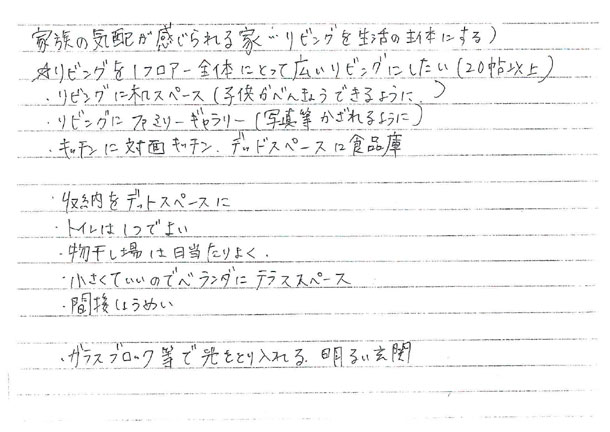 家族の気配が感じられる家…リビングを生活の主体にする)
☆リビングを1フロアー全体にとって広いリビングにしたい(20帖以上)
・リビングに机スペース(子供がべんきょうできるように、)
・リビングにファミリーギャラリー(写真等かざれるように)
・キッチンに対面キッチン、デッドスペースに食品庫
・収納をデットスペースに
・トイレは1つでよい
・物干し場は日当たりよく、
・小さくていいのでベランダにテラススペース
・間接しょうめい
・ガラスブロック等で光をとり入れる、明るい玄関